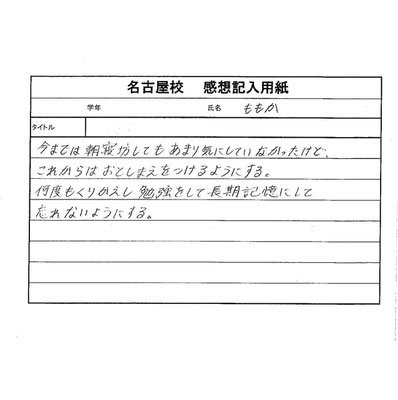 名古屋校 感想記入用紙
学年 氏名 ももか
タイトル
今までは朝寝坊してもあまり気にしていなかったけど、
これからはおとしまえをつけるようにする。
何度もくりかえし勉強をして長期記憶にして
忘れないようにする。